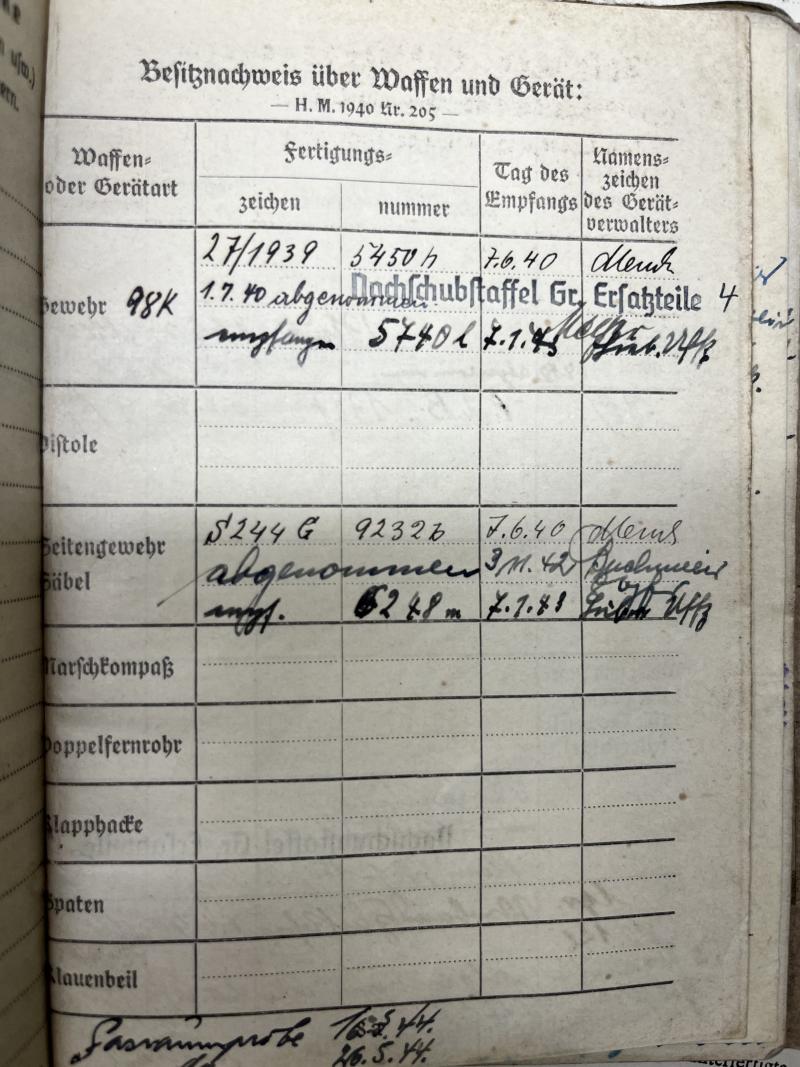 Besitznachweis über Waffen und Gerät:
— H. M. 1940 Nr. 205 —
Waffen-
oder Gerätart
Fertigungs-
zeichen
nummer
Tag des
Empfangs
Namens-
zeichen
des Gerät-
verwalters
27/1939 5450 h 7.6.40
Gewehr 98K
1.7.40 abgenommen Nachschubstaffel Gr. Ersatzteile 4
empfangen 5740 l 7.1.43 Uffz
Pistole
S244 G 9232 b 7.6.40
Seitengewehr
Säbel
abgenommen 3/11.42
empf. 6248 m 7.1.43 Uffz
Marschkompaß
Doppelfernrohr
Klapphacke
Spaten
Klauenbeil
Gasraumprobe 44.
26.5.44.